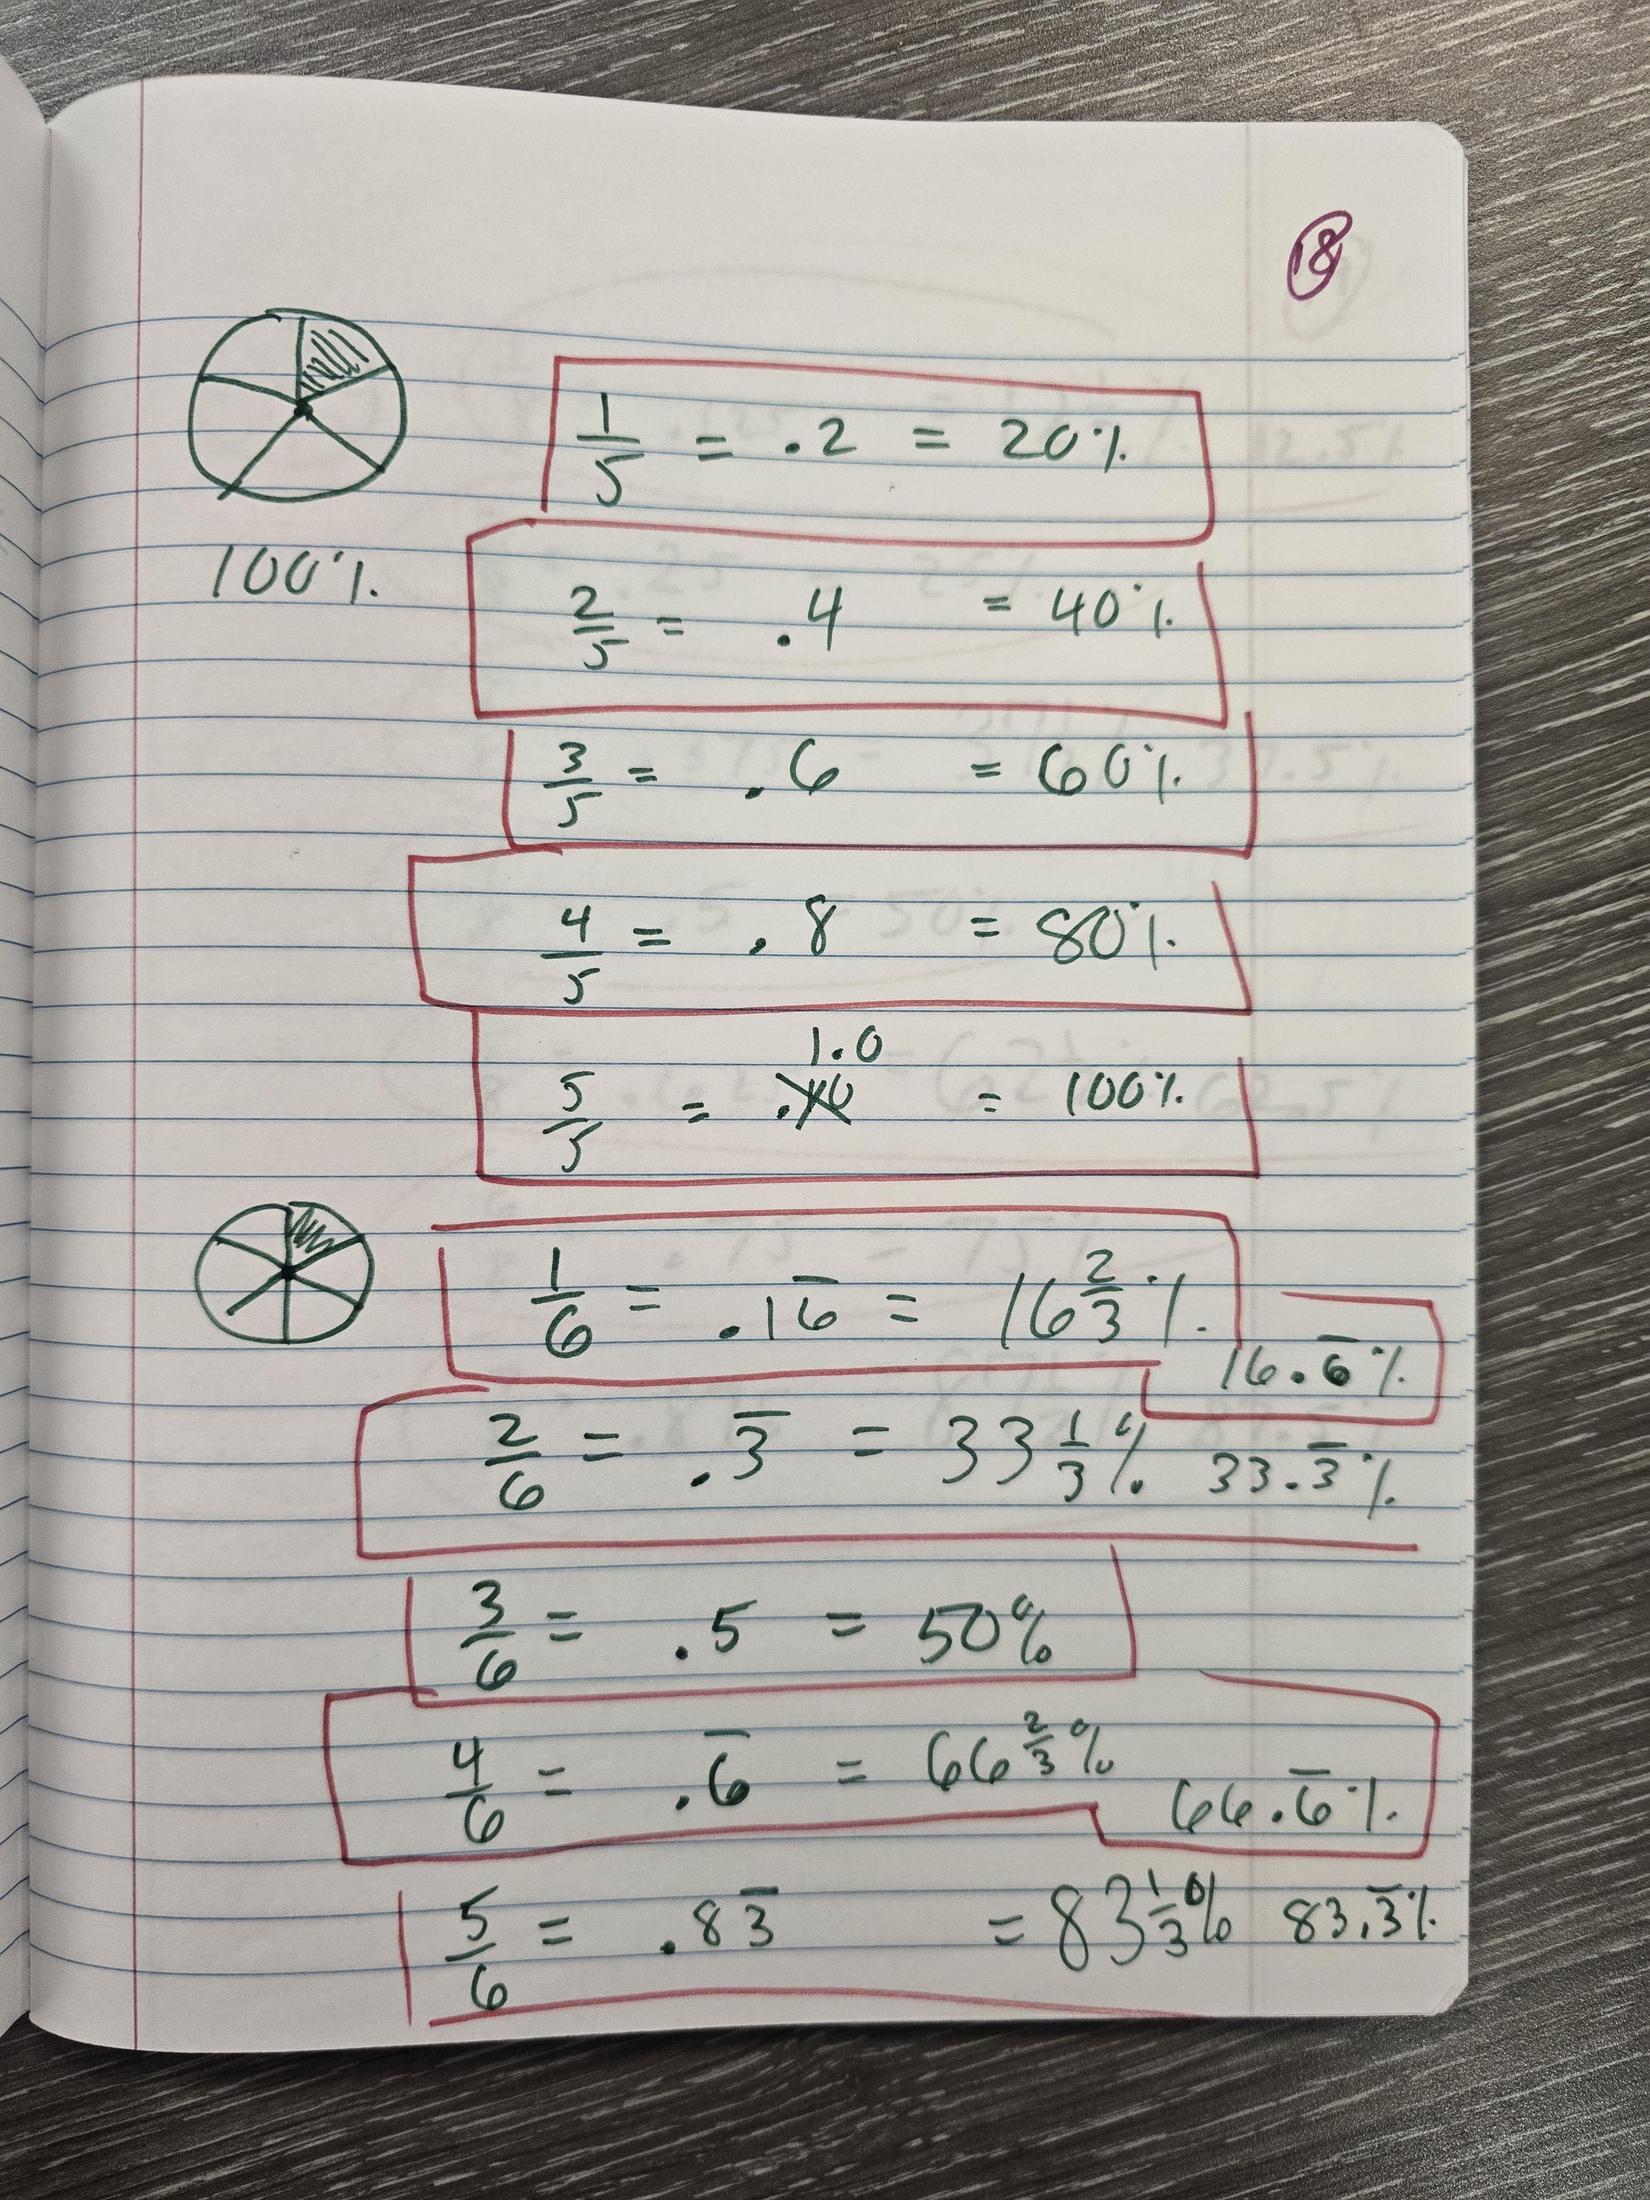 18
1/5 = .2 = 20%
100%
2/5 = .4 = 40%
3/5 = .6 = 60%
4/5 = .8 = 80%
1.0
5/5 = .10 = 100%
1/6 = .16̅ = 16 2/3 %
16.6̅%
2/6 = .3̅ = 33 1/3 % 33.3̅%
3/6 = .5 = 50%
4/6 = .6̅ = 66 2/3 %
66.6̅%
5/6 = .83̅ = 83 1/3 % 83.3̅%